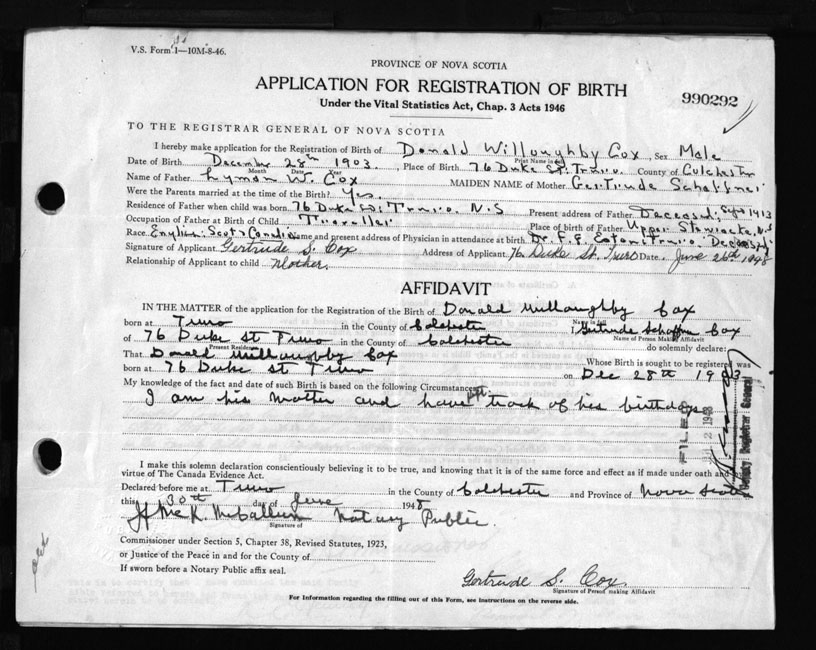 V.S. Form 1—10M-8-46.
PROVINCE OF NOVA SCOTIA
APPLICATION FOR REGISTRATION OF BIRTH
990292
Under the Vital Statistics Act, Chap. 3 Acts 1946
TO THE REGISTRAR GENERAL OF NOVA SCOTIA
I hereby make application for the Registration of Birth of Donald Willoughby Cox, Sex Male
Print Name in full
Date of Birth December 28th 1903, Place of Birth 76 Duke St. Truro. County of Colchester
Month Date Year
Name of Father Lyman W. Cox MAIDEN NAME of Mother Gertrude Schaffner
Were the Parents married at the time of the Birth? Yes.
Residence of Father when child was born 76 Duke St. Truro. N.S Present address of Father Deceased. Sept 1913
Occupation of Father at Birth of Child Traveller Place of birth of Father Upper Stewiacke, N.S
Race English: Scot: Canadian Name and present address of Physician in attendance at birth Dr. F. E. Eaton. Truro. Deceased
Signature of Applicant Gertrude S. Cox Address of Applicant 76 Duke St. Truro Date June 26th 1948
Relationship of Applicant to child Mother.
AFFIDAVIT
IN THE MATTER of the application for the Registration of the Birth of Donald Willoughby Cox
born at Truro in the County of Colchester I Gertrude Schaffner Cox
Name of Person Making Affidavit
of 76 Duke St Truro in the County of Colchester do solemnly declare:
Present Residence
That Donald Willoughby Cox Whose Birth is sought to be registered was
born at 76 Duke St Truro on Dec 28th 1903
My knowledge of the fact and date of such Birth is based on the following Circumstances
I am his mother and have kept track of his birthdays
FILED
2 1948
Deputy Registrar General
I make this solemn declaration conscientiously believing it to be true, and knowing that it is of the same force and effect as if made under oath and by
virtue of The Canada Evidence Act.
Declared before me at Truro in the County of Colchester and Province of Nova Scotia
this 30th day of June 1948
McCallum Notary Public.
Signature of
Commissioner under Section 5, Chapter 38, Revised Statutes, 1923,
or Justice of the Peace in and for the County of
If sworn before a Notary Public affix seal.
Gertrude S. Cox.
Signature of Person making Affidavit
For Information regarding the filling out of this Form, see instructions on the reverse side.